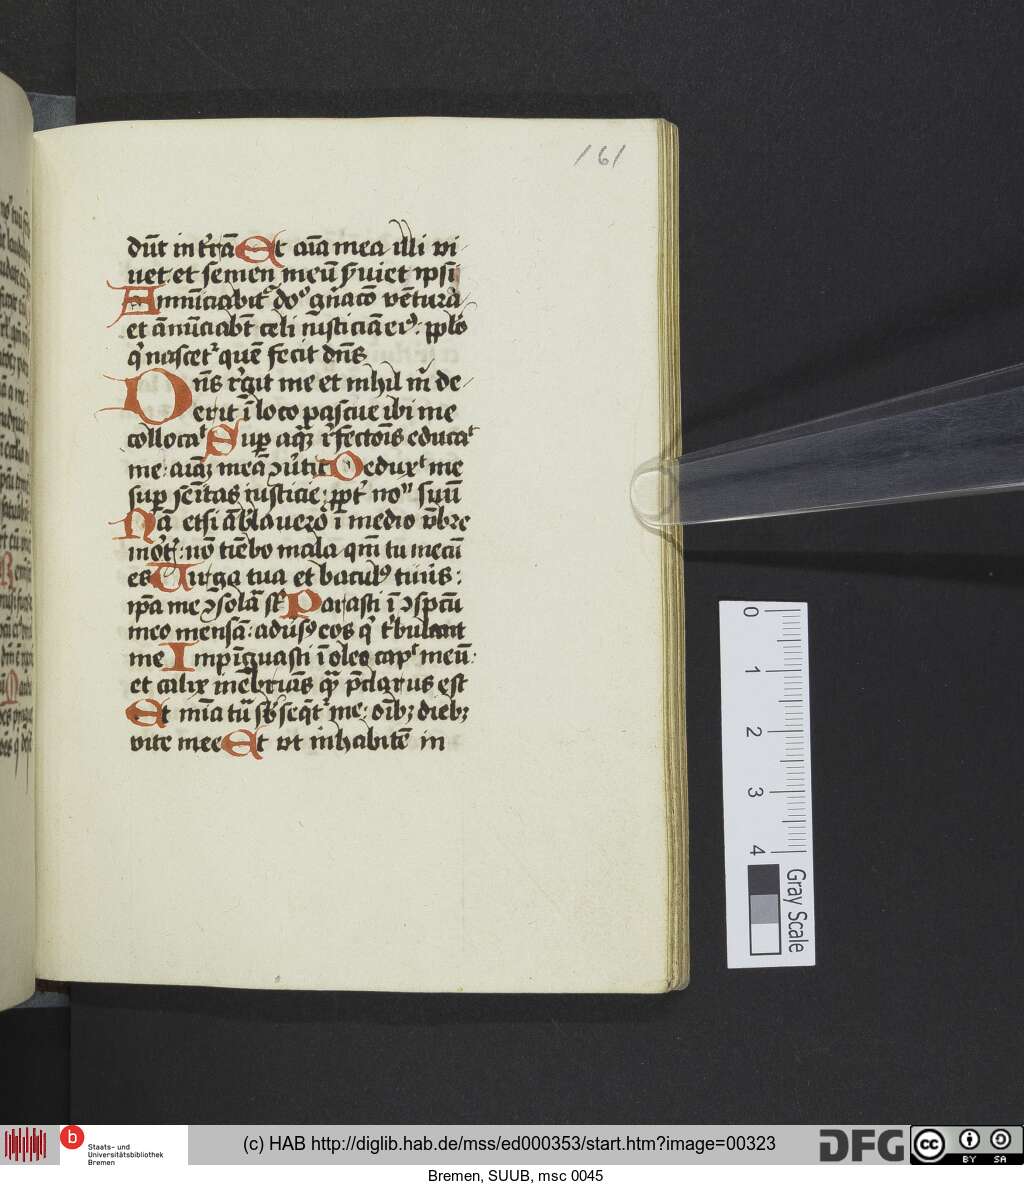 161
dūt in t'rā Et aīa mea illi vi
uet: et semen meū s'uiet ipsi
Annūciabit' do° gn'acō vētura
et ānūciabt celi iusticiā ei9: pplo
q' nascet' quē fecit dns
Dns r'git me et nihil m' de
erit ī loco pascue ibi me
collocā Sup aq̄ r'fectōis educa'
me: aīaz meā ɔu'tit Dedux' me
sup semitas iusticie: ppt' no suū
Nā etsi ābulauero ī medio vbre
mōt': nō timebo mala qm tu mecū
es Uirga tua et bacul9 tuus:
ipa me ɔsolā st' Parasti ī ɔspcū
meo mensā: adus9 eos q' t'bulant
me Impīguasti ī oleo cap' meū:
et calix me īebriās q̄ p̄clarus est
Et mīa tu sb'seqt' me: oībz diebz
vite mee Et vt inhabitē in
0 1 2 3 4
Gray Scale
b Staats- und
Universitätsbibliothek
Bremen
(c) HAB http://diglib.hab.de/mss/ed000353/start.htm?image=00323
DFG
cc BY SA
Bremen, SUUB, msc 0045